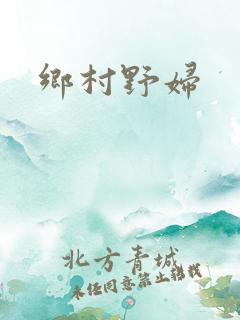 鄉村野婦
北方青城
未经同意禁止转载